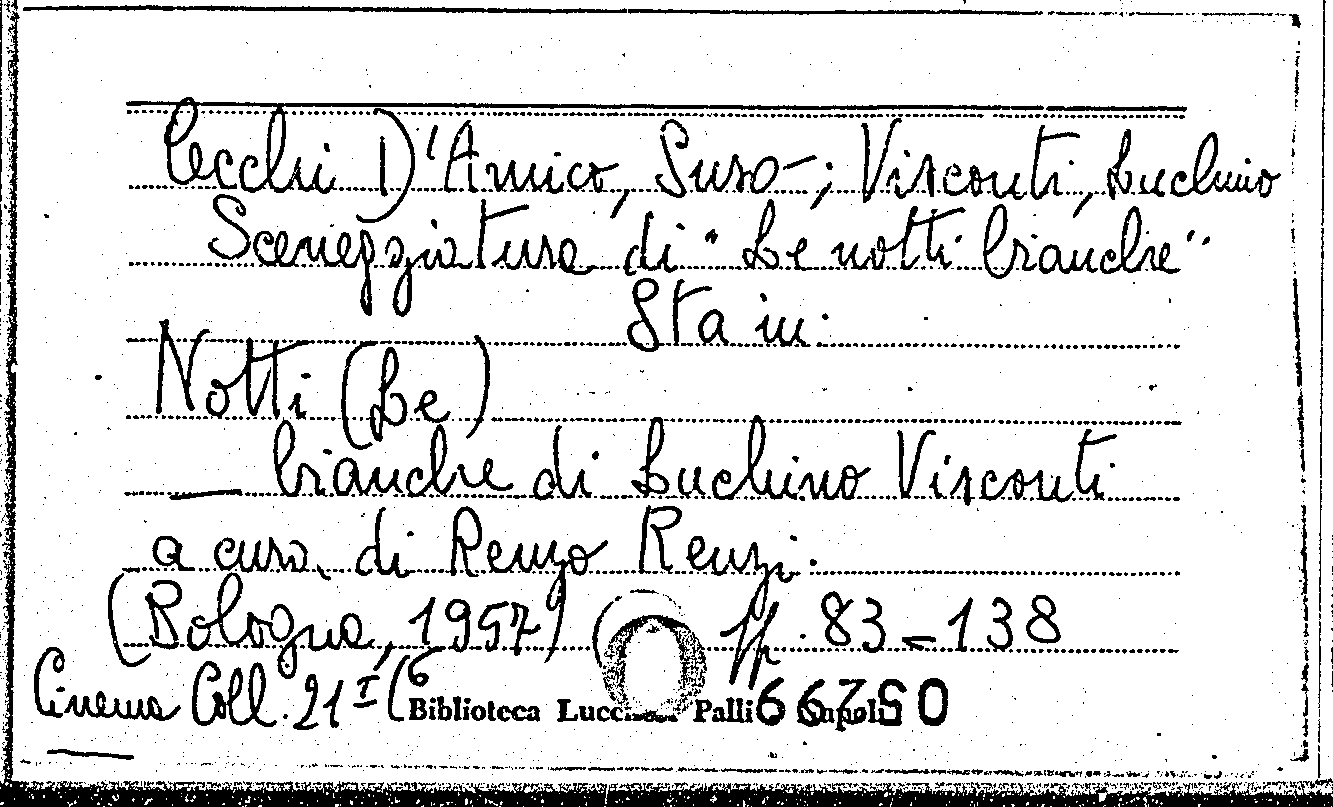 Cecchi D'Amico, Suso-; Visconti, Luchino
Sceneggiatura di "Le notti bianche"
Sta in:
Notti (Le)
— bianche di Luchino Visconti
a cura di Renzo Renzi.
(Bologna, 1957) pp. 83-138
Cinema Coll. 21 I (6
Biblioteca Lucchesi Palli Napoli